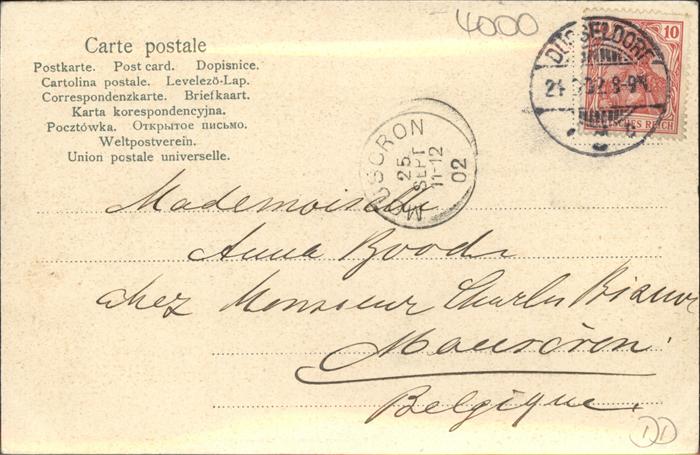 4000
Carte postale
Postkarte. Post card. Dopisnice.
Cartolina postale. Levelező-Lap.
Correspondenzkarte. Briefkaart.
Karta korespondencyjna.
Pocztówka. Открытое письмо.
Weltpostverein.
Union postale universelle.
10
DEUTSCHES REICH
DÜSSELDORF
MOUSCRON
25
SEPT
11-12
02
Mademoiselle
Anna Boods
chez Monsieur Charles
Mouscron
Belgique.